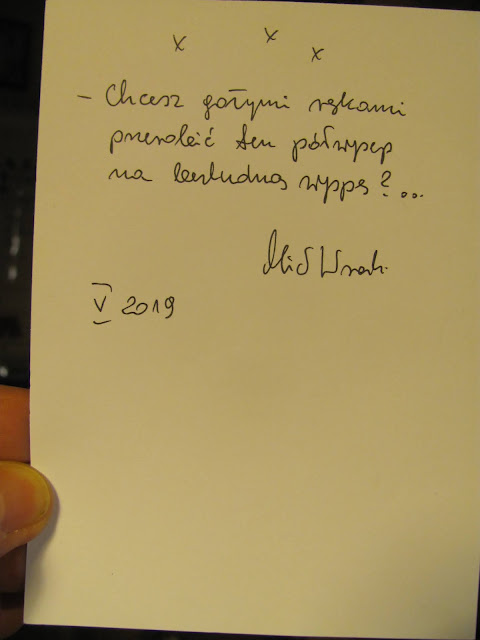 x x x
– Chcesz gołymi rękami
przerobić ten półwysep
na bezludną wyspę?...
V 2019